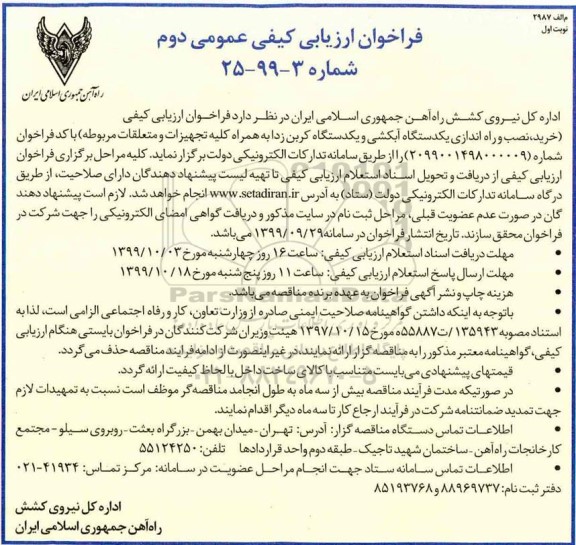 م الف ۲۹۸۷
نوبت اول
فراخوان ارزیابی کیفی عمومی دوم
شماره ۳-۹۹-۲۵
راه آهن جمهوری اسلامی ایران
اداره کل نیروی کشش راه آهن جمهوری اسلامی ایران در نظر دارد فراخوان ارزیابی کیفی
(خرید، نصب و راه اندازی یکدستگاه آبکشی و یکدستگاه کربن زدا به همراه کلیه تجهیزات و متعلقات مربوطه) با کد فراخوان
شماره (۲۰۹۹۰۰۱۴۹۸۰۰۰۰۰۹) را از طریق سامانه تدارکات الکترونیکی دولت برگزار نماید. کلیه مراحل برگزاری فراخوان
ارزیابی کیفی از دریافت و تحویل اسناد استعلام ارزیابی کیفی تا تهیه لیست پیشنهاد دهندگان دارای صلاحیت، از طریق
درگاه سامانه تدارکات الکترونیکی دولت (ستاد) به آدرس www.setadiran.ir انجام خواهد شد. لازم است پیشنهاد دهند
گان در صورت عدم عضویت قبلی، مراحل ثبت نام در سایت مذکور و دریافت گواهی امضای الکترونیکی را جهت شرکت در
فراخوان محقق سازند. تاریخ انتشار فراخوان در سامانه ۱۳۹۹/۰۹/۲۹ می باشد.
• مهلت دریافت اسناد استعلام ارزیابی کیفی: ساعت ۱۶ روز چهارشنبه مورخ ۱۳۹۹/۱۰/۰۳
• مهلت ارسال پاسخ استعلام ارزیابی کیفی: ساعت ۱۱ روز پنج شنبه مورخ ۱۳۹۹/۱۰/۱۸
• هزینه چاپ و نشر آگهی فراخوان به عهده برنده مناقصه می باشد.
• با توجه به اینکه داشتن گواهینامه صلاحیت ایمنی صادره از وزارت تعاون، کار و رفاه اجتماعی الزامی است، لذا به
استناد مصوبه ۱۳۵۹۴۳/ت۵۵۸۸۷ه مورخ ۱۳۹۷/۱۰/۱۵ هیئت وزیران شرکت کنندگان در فراخوان بایستی هنگام ارزیابی
کیفی، گواهینامه معتبر مذکور را به مناقصه گزار ارائه نمایند، در غیر اینصورت از ادامه فرایند مناقصه حذف می گردد.
• قیمتهای پیشنهادی می بایست متناسب با کالای ساخت داخل با لحاظ کیفیت ارائه گردد.
• در صورتیکه مدت فرآیند مناقصه بیش از سه ماه به طول انجامد مناقصه گر موظف است نسبت به تمهیدات لازم
جهت تمدید ضمانتنامه شرکت در فرآیند ارجاع کار تا سه ماه دیگر اقدام نمایند.
• اطلاعات تماس دستگاه مناقصه گزار: آدرس: تهران-میدان بهمن-بزرگراه بعثت-روبروی سیلو-مجتمع
کارخانجات راه آهن-ساختمان شهید تاجیک-طبقه دوم واحد قراردادها تلفن: ۵۵۱۲۴۲۵۰
• اطلاعات تماس سامانه ستاد جهت انجام مراحل عضویت در سامانه: مرکز تماس: ۴۱۹۳۴-۰۲۱
دفتر ثبت نام: ۸۸۹۶۹۷۳۷ و ۸۵۱۹۳۷۶۸
اداره کل نیروی کشش
راه آهن جمهوری اسلامی ایران